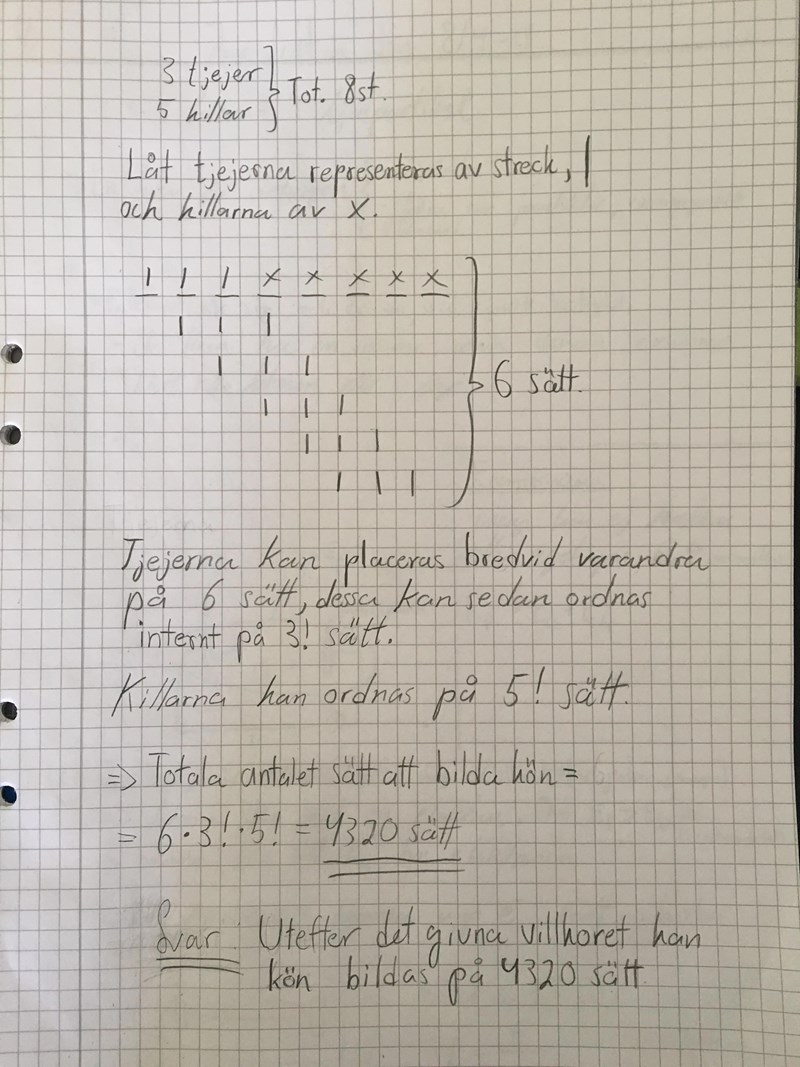 3 tjejer
5 killar } Tot. 8st.
Låt tjejerna representeras av streck, |
och killarna av X.
| | | x x x x x
| | |
| | | } 6 sätt.
| | |
| | |
| | |
Tjejerna kan placeras bredvid varandra
på 6 sätt, dessa kan sedan ordnas
internt på 3! sätt.
Killarna kan ordnas på 5! sätt.
=> Totala antalet sätt att bilda kön =
= 6·3!·5! = 4320 sätt
Svar: Utefter det givna villkoret kan
kön bildas på 4320 sätt